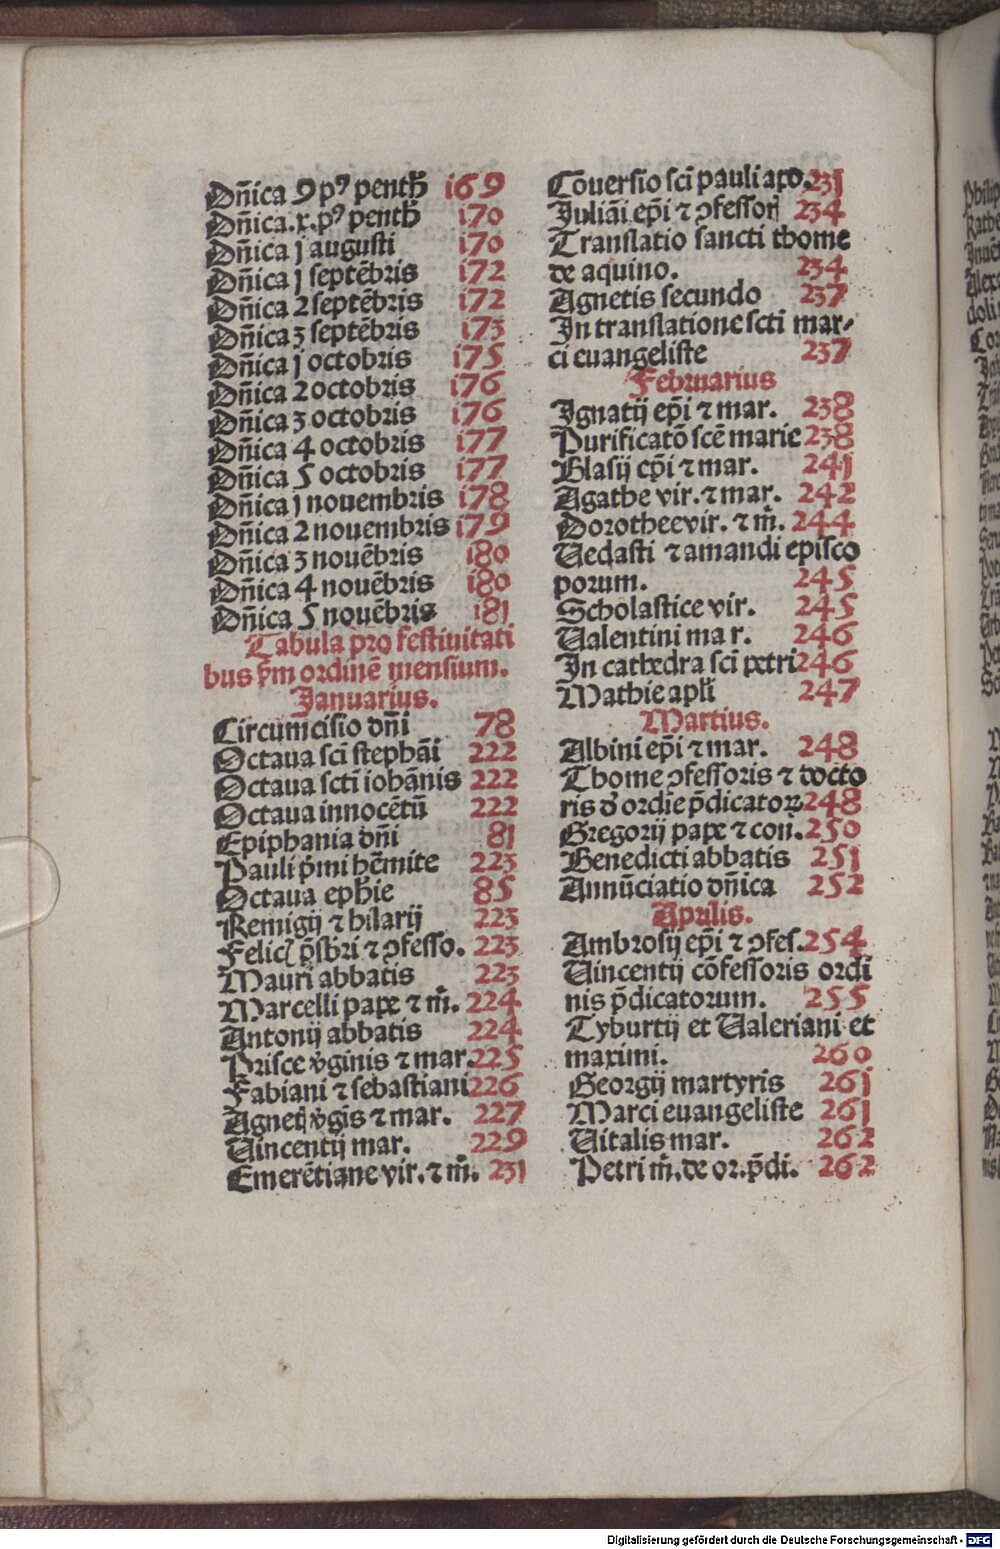 Dñica 9 pꝰ penth̄ i69
Dñica.x.pꝰ penth̄ i70
Dñica j augusti i70
Dñica j septēbris i72
Dñica 2 septēbris i72
Dñica 3 septēbris i73
Dñica j octobris i75
Dñica 2 octobris i76
Dñica 3 octobris i76
Dñica 4 octobris i77
Dñica 5 octobris i77
Dñica j nouembris i78
Dñica 2 nouembris i79
Dñica 3 nouēbris i80
Dñica 4 nouēbris i80
Dñica 5 nouēbris i8j
Tabula pro festiuitati
bus ẜm ordinē mensium.
Januarius.
Circumcisio dñi 78
Octaua scī stephāi 222
Octaua sctī iohānis 222
Octaua innocētū 222
Epiphania dñi 8j
Pauli p̄mi hēmite 223
Octaua eph̄ie 85
Remigij ⁊ hilarij 223
Felicꝭ p̄sbri ⁊ ꝯfesso. 223
Mauri abbatis 223
Marcelli pape ⁊ m̄. 224
Antonij abbatis 224
Prisce v̓ginis ⁊ mar. 225
Fabiani ⁊ sebastiani 226
Agnetꝭ v̓gīs ⁊ mar. 227
Uincentij mar. 229
Emerētiane vir. ⁊ m̄. 23j
Cōuersio scī pauli apo. 23j
Juliāi ep̄i ⁊ ꝯfessorꝭ 234
Translatio sancti thome
de aquino. 234
Agnetis secundo 237
In translatione sctī mar⸗
ci euangeliste 237
Februarius
Ignatij ep̄i ⁊ mar. 238
Purificatō scē marie 238
Blasij ep̄i ⁊ mar. 24j
Agathe vir. ⁊ mar. 242
Dorothee vir. ⁊ m̄. 244
Uedasti ⁊ amandi episco
porum. 245
Scholastice vir. 245
Ualentini mar. 246
In cathedra scī petri 246
Mathie apl̄i 247
Martius.
Albini ep̄i ⁊ mar. 248
Thome ꝯfessoris ⁊ docto
ris d̓ ordīe p̄dicatoꝝ 248
Gregorij pape ⁊ con̄. 250
Benedicti abbatis 25j
Annūciatio dñica 252
Aprilis.
Ambrosij ep̄i ⁊ ꝯfes. 254
Uincentij cōfessoris ordi
nis p̄dicatorum. 255
Tyburtij et Ualeriani et
maximi. 260
Georgij martyris 26j
Marci euangeliste 26j
Uitalis mar. 262
Petri m̄. de or. p̄di. 262
Digitalisierung gefördert durch die Deutsche Forschungsgemeinschaft - DFG